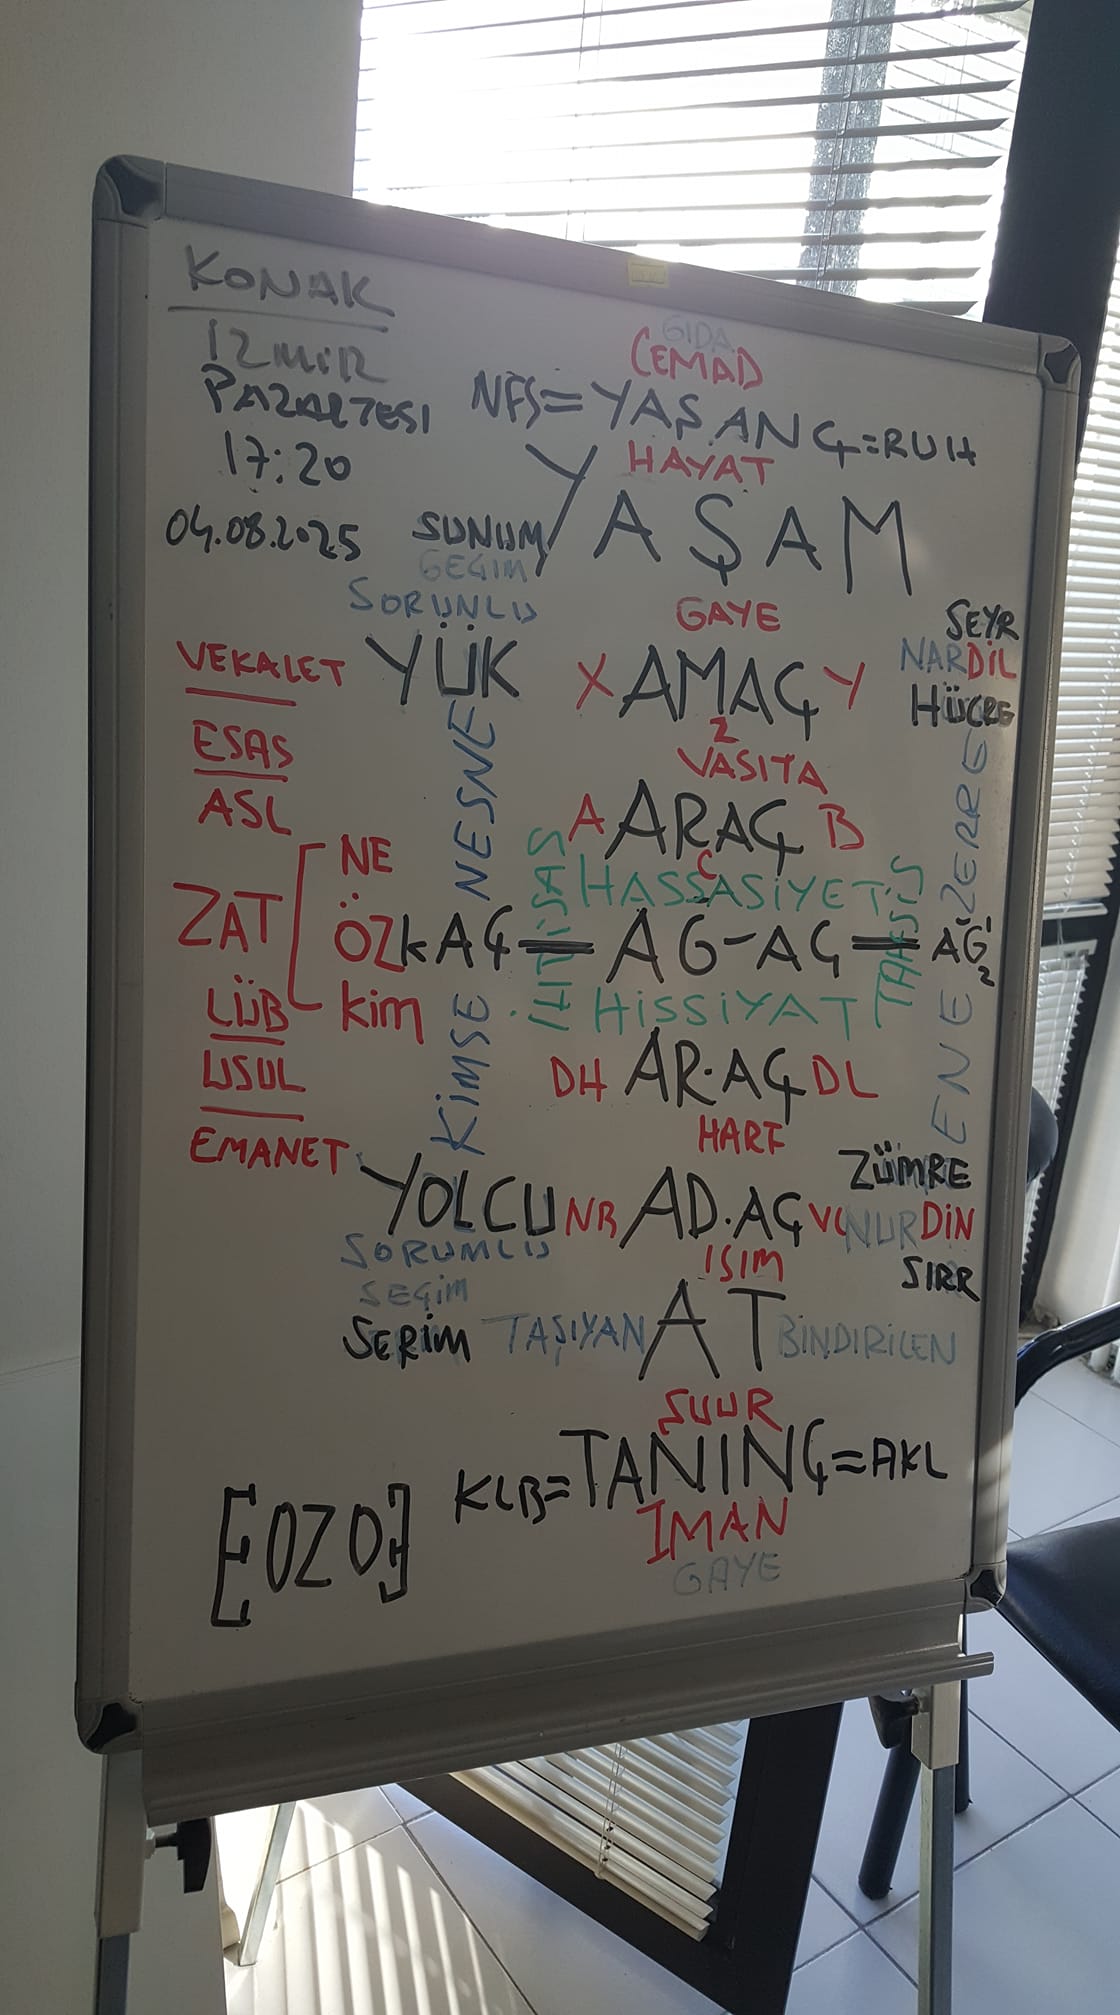 KONAK
İZMİR
PAZARTESİ
17:20
04.08.2025
GIDA
CEMAD
NFS=YAŞANÇ=RUH
HAYAT
YAŞAM
SUNUM
GEÇİM
SORUNLU
GAYE
SEYR
VEKALET YÜK X AMAÇ Y NARDİL
Z
HÜCRE
ESAS
NESNE
VASITA
ZERRE
ASL
A ARAÇ B
Ç
NE
HASSASİYET
İHTİSAS
TAHSİS
ZAT ÖZkAÇ = AG-AÇ = AĞ 1 2
LÜB kim
KİMSE
HİSSİYAT
ENE
USUL
DH AR.AÇ DL
HARF
EMANET
ZÜMRE
YOLCU NR AD.AÇ NURDİN
SORUMLU
İSİM
SIRR
SEÇİM
SERİM TAŞIYAN AT BİNDİRİLEN
ŞUUR
KLB=TANINÇ=AKL
İMAN
GAYE